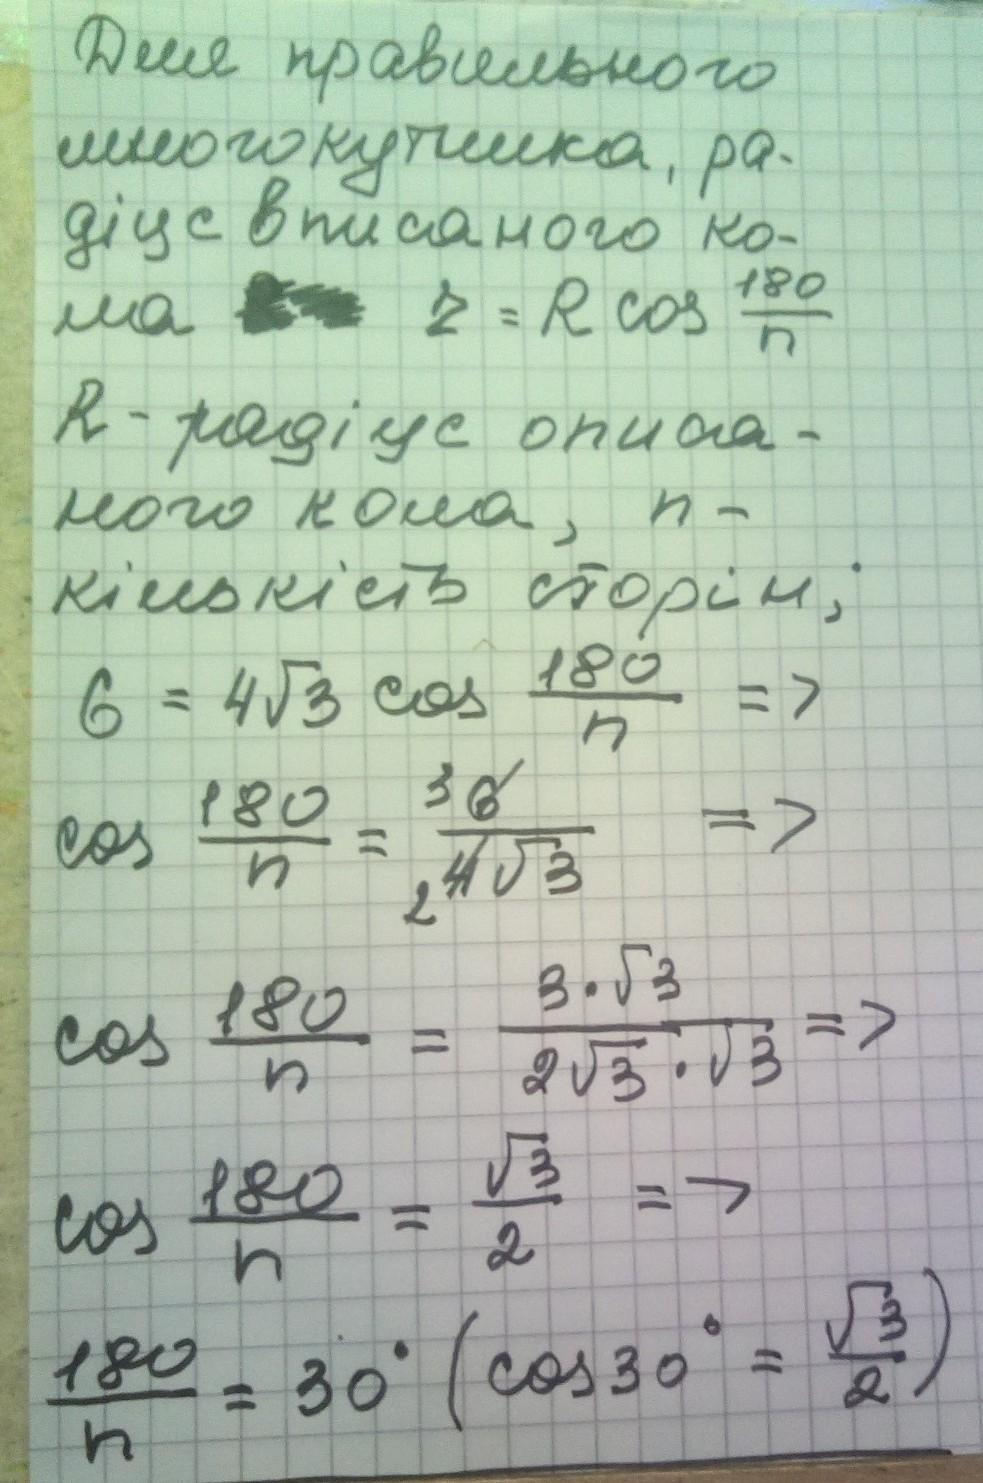 Для правильного
многокутника, ра-
діус вписаного ко-
ла r = R cos 180/n
R - радіус описа-
ного кола, n -
кількість сторін;
6 = 4√3 cos 180/n =>
cos 180/n = 3 6 / 2 4√3 =>
cos 180/n = 3·√3 / 2√3·√3 =>
cos 180/n = √3/2 =>
180/n = 30° (cos 30° = √3/2)